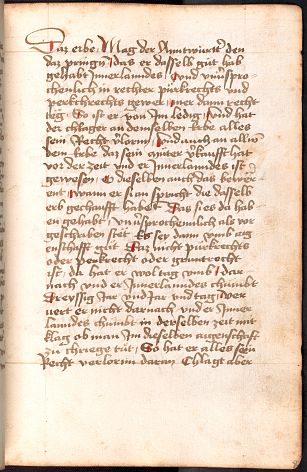 Daz erbe Mag der Anntwurtt den
daz pringn / das er dasselb gut hab
gehabt Innerlanndes / Und unuspro-
chenlich in rechter purkrechts und
perkchrechts gewer / wer dann recht
ist So ist er von Im ledig / und hat
der chlager an demselben Erbe alles
sein Recht verlorn / und auch an allen
den erbe daz sein anttter verkaufft hat
vor der zeit und er Innerlanndes ist
gewesen / dieselben auch das bewer
ent / wann er si an spricht die dasselb
erb gechaufft habent Das si es da hab
en gehabt / unversprochennlich als vor
geschriben stet Es sey dann umb aig
enschafft gut Daz nicht purkrechts
oder perkrecht oder gruntrecht
ist / da hat er wol tag umb / dar
nach und er Innerlanndes chumbt
Dreyssig Jar und Jar und tag / ver
vert er nicht darnach und er Inner
lanndes chumbt in derselben zeit mit
klag ob man Im dieselben aigenschafft
zu chriege tut / So hat er alles sein
Recht verlorn daran Chlagt aber